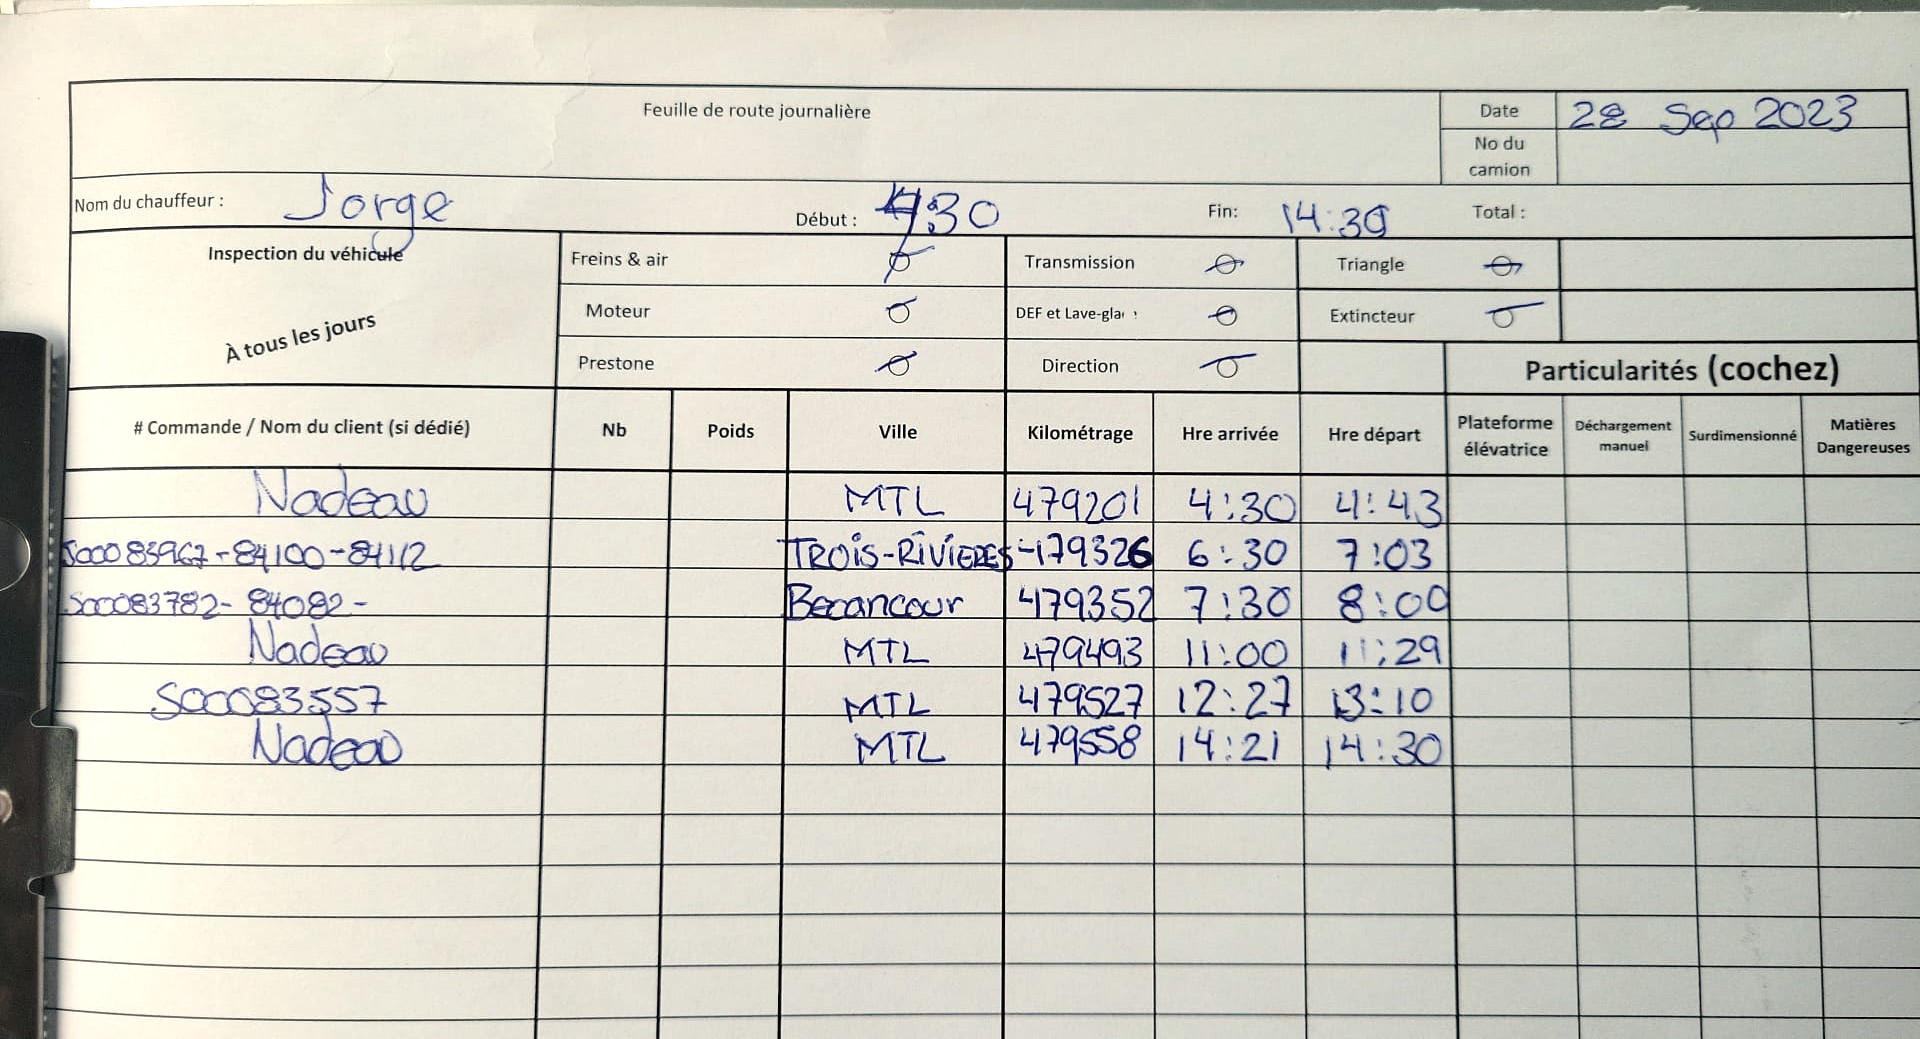 Feuille de route journalière
Date 28 Sep 2023
No du camion
Nom du chauffeur : Jorge Début : 4:30 Fin: 14:30 Total :
Inspection du véhicule
À tous les jours
Freins & air Transmission Triangle
Moteur DEF et Lave-gla Extincteur
Prestone Direction
Particularités (cochez)
# Commande / Nom du client (si dédié) Nb Poids Ville Kilométrage Hre arrivée Hre départ Plateforme élévatrice Déchargement manuel Surdimensionné Matières Dangereuses
Nadeau MTL 479201 4:30 4:43
S00083967-84100-84112 TROIS-RIVIERES 479326 6:30 7:03
S00083782-84082- Becancour 479352 7:30 8:00
Nadeau MTL 479493 11:00 11:29
S00083557 MTL 479527 12:27 13:10
Nadeau MTL 479558 14:21 14:30